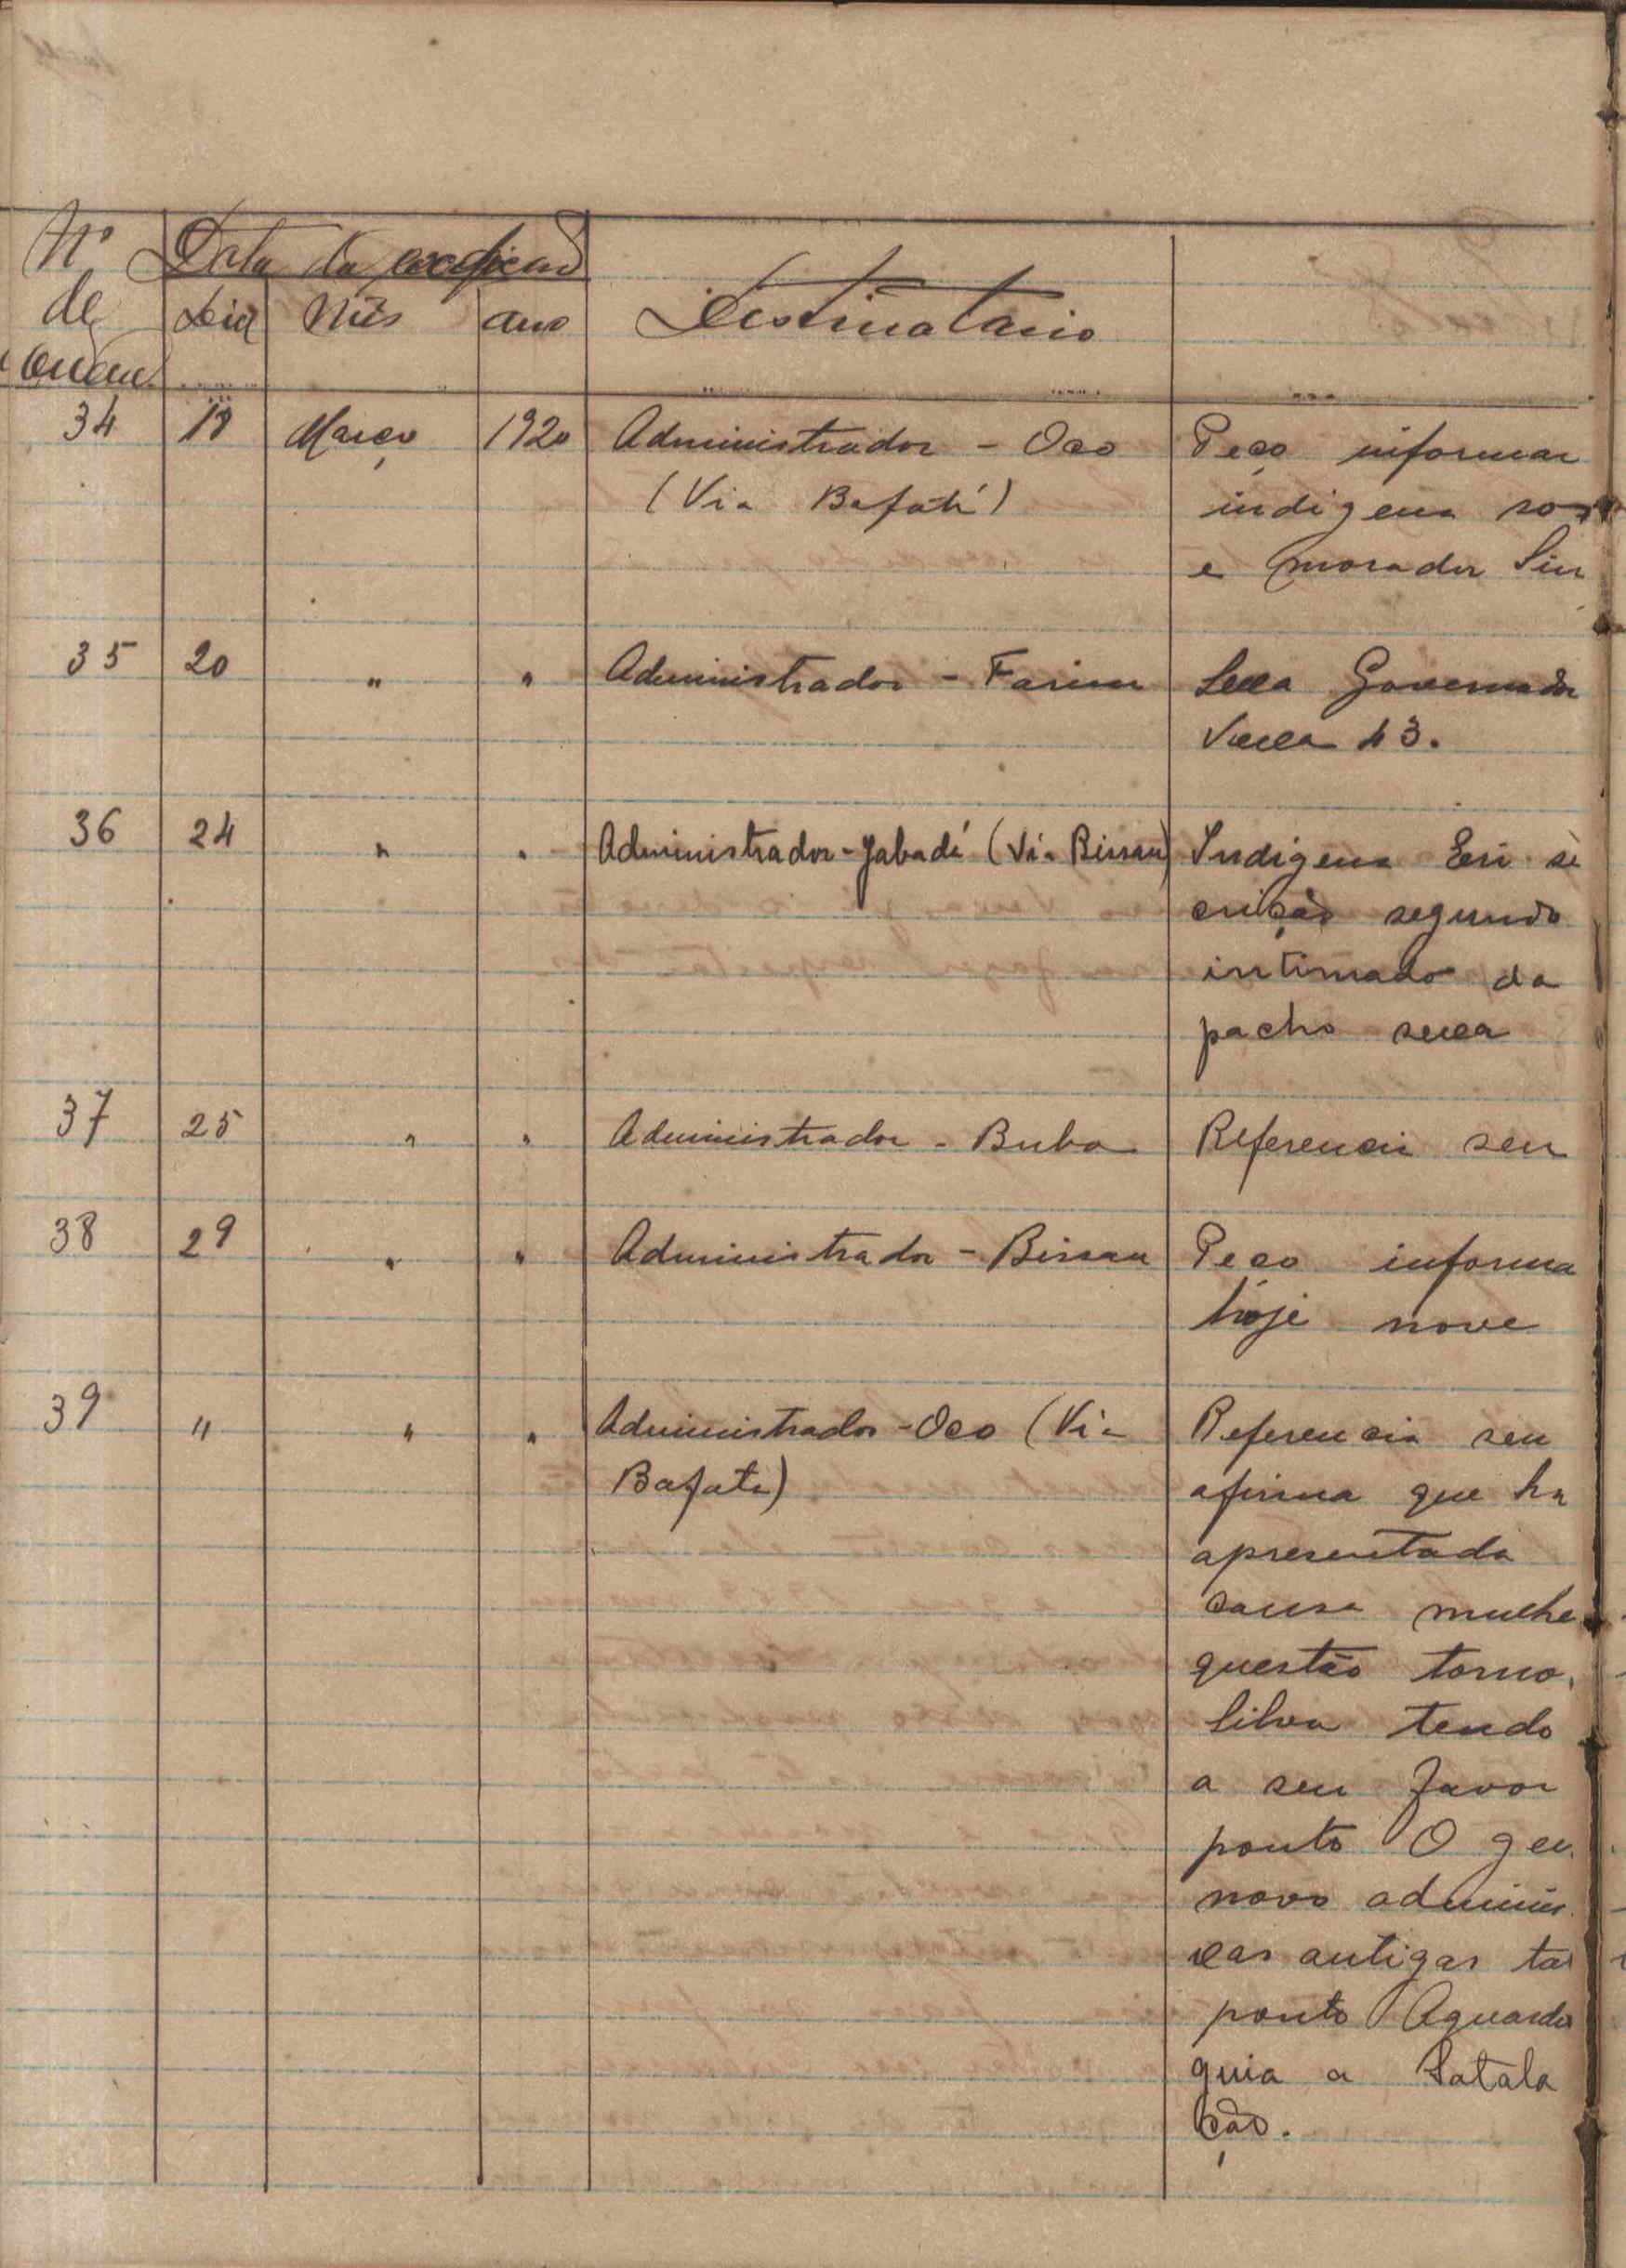 Nº de ordem
Data da expedição
Dia Mês ano
Destinatario
34 18 Março 1920 Administrador - Oco Peço informar
(Via Bafatá) indigena
e morador
35 20 " " Administrador - Farim Governador
43.
36 24 " " Administrador - Jabadá (Via Bissau) Indigena
segundo
intimado da
pacho
37 25 " " Administrador - Buba Referencia seu
38 29 " " Administrador - Bissau Peço informa
hoje nove
39 " " " Administrador - Oco (Via Referencia seu
Bafata) afirma que ha
apresentada
causa mulhe
questão torno
Silva tendo
a seu favor
ponto O
novo adminis
cas antigas
ponto Aguarda
guia a Satala
ção.